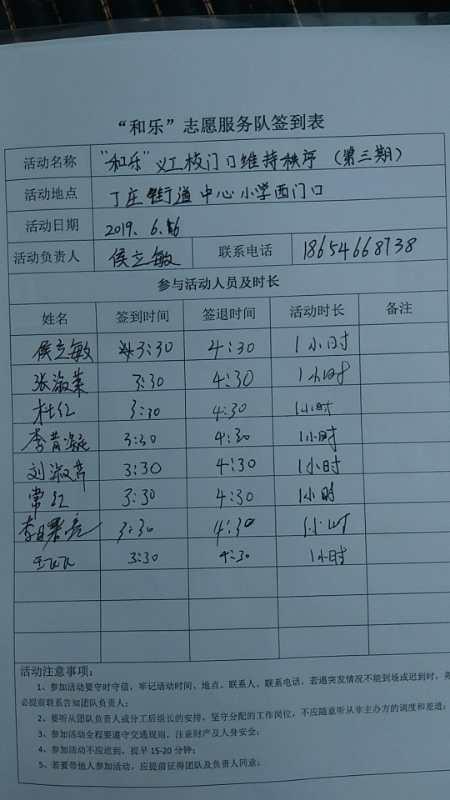 “和乐”志愿服务队签到表
活动名称 “和乐”义工校门口维持秩序(第三期)
活动地点 丁庄街道中心小学西门口
活动日期 2019. 6.
活动负责人 侯立敏 联系电话 18654668738
参与活动人员及时长
姓名 签到时间 签退时间 活动时长 备注
侯立敏 3:30 4:30 1小时
张淑荣 3:30 4:30 1小时
杜红 3:30 4:30 1小时
李 3:30 4:30 1小时
刘淑芹 3:30 4:30 1小时
常红 3:30 4:30 1小时
3:30 4:30 1小时
3:30 4:30 1小时
活动注意事项:
1、参加活动要守时守信,牢记活动时间、地点、联系人、联系电话,若遇突发情况不能到场或迟到时,务
必提前联系告知团队负责人;
2、要听从团队负责人或分工后组长的安排,坚守分配的工作岗位,不应随意听从非主办方的调度和差遣;
3、参加活动全程要遵守交通规则,注意财产及人身安全;
4、参加活动不应迟到,提早 15-20 分钟;
5、若要带他人参加活动,应提前征得团队及负责人同意;